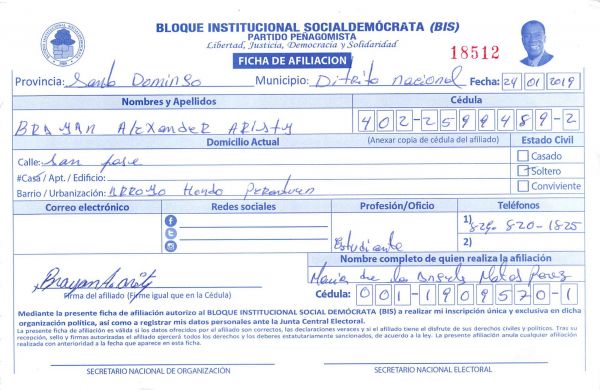 BLOQUE INSTITUCIONAL SOCIALDEMÓCRATA (BIS)
PARTIDO PEÑAGOMISTA
Libertad, Justicia, Democracia y Solidaridad
18512
FICHA DE AFILIACION
Provincia: Santo Domingo Municipio: Distrito nacional Fecha: 24 01 2019
Nombres y Apellidos Cédula
BRAYAN Alexander ARISTY 402-2599489-2
Domicilio Actual (Anexar copia de cédula del afiliado) Estado Civil
Calle: San jose Casado
#Casa / Apt. / Edificio: Soltero
Barrio / Urbanización: ARROYO Hondo Conviviente
Correo electrónico Redes sociales Profesión/Oficio Teléfonos
1) 829-820-1825
Estudiante 2)
Nombre completo de quien realiza la afiliación
Maria de los Angeles Matos Perez
Firma del afiliado (Firme igual que en la Cédula) Cédula: 001-1909570-1
Mediante la presente ficha de afiliación autorizo al BLOQUE INSTITUCIONAL SOCIAL DEMÓCRATA (BIS) a realizar mi inscripción única y exclusiva en dicha
organización política, así como a registrar mis datos personales ante la Junta Central Electoral.
La presente ficha de afiliación es válida si los datos ofrecidos por el afiliado son correctos, las declaraciones veraces y si el afiliado tiene el disfrute de sus derechos civiles y políticos. Tras su
recepción, sello y firmas autorizadas el afiliado ejercerá todos los derechos y los deberes estatutariamente sancionados, de acuerdo a la ley. La presente afiliación anula cualquier afiliación
realizada con anterioridad a la fecha que aparece en esta ficha.
SECRETARIO NACIONAL DE ORGANIZACIÓN SECRETARIO NACIONAL ELECTORAL